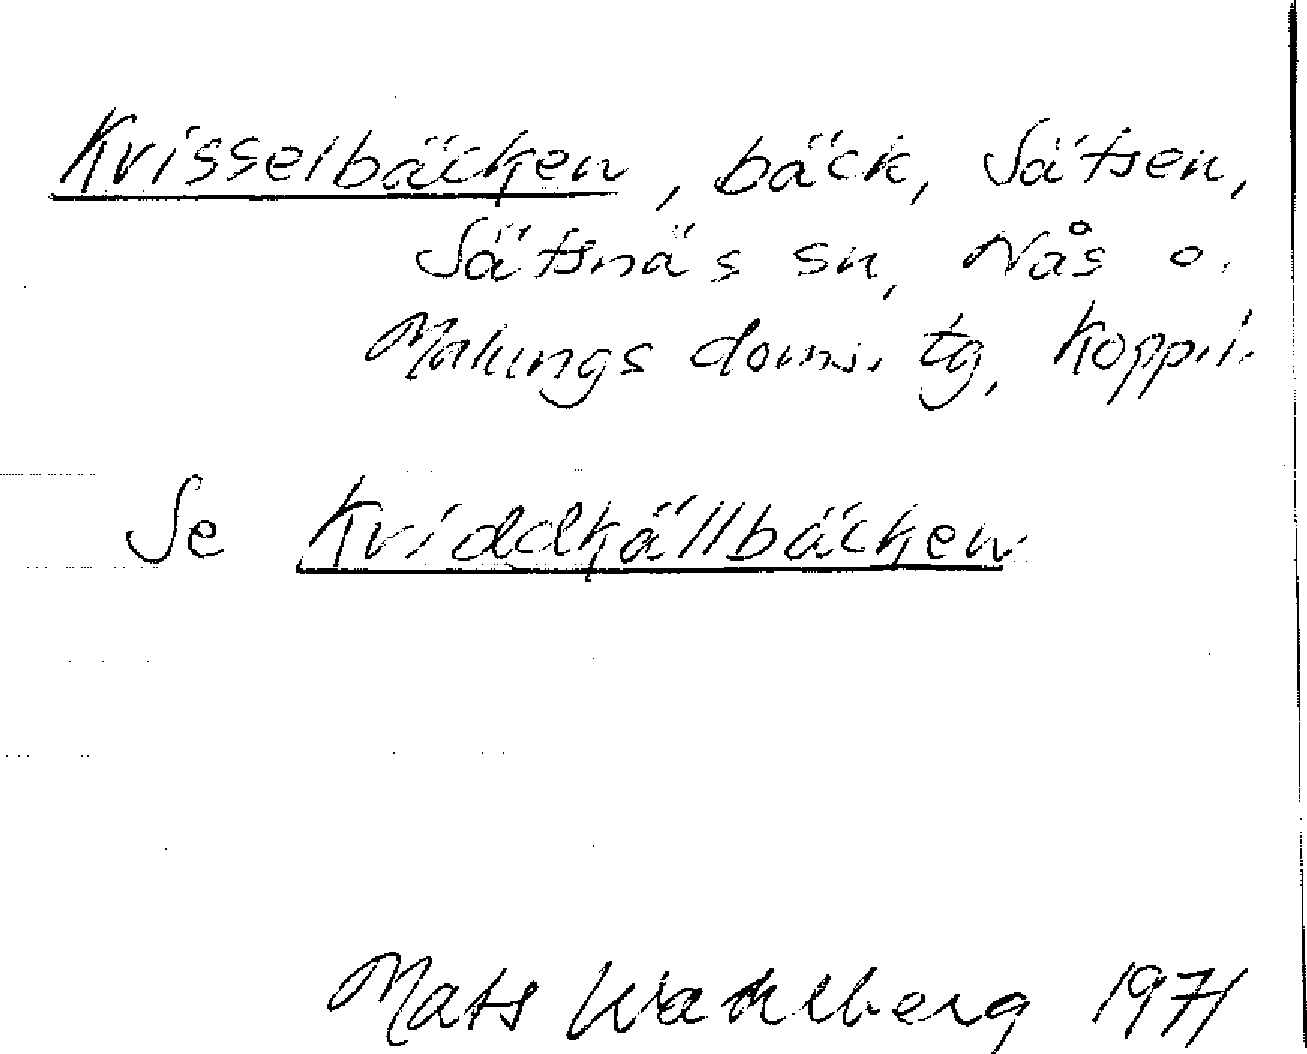 Krisselbäcken, bäck, Sätsen,
Sätsnäs sn, Nås o.
Malungs doms. tg, Kopp. l.
Se Kriddkällbäcken
Mats Wahlberg 1971